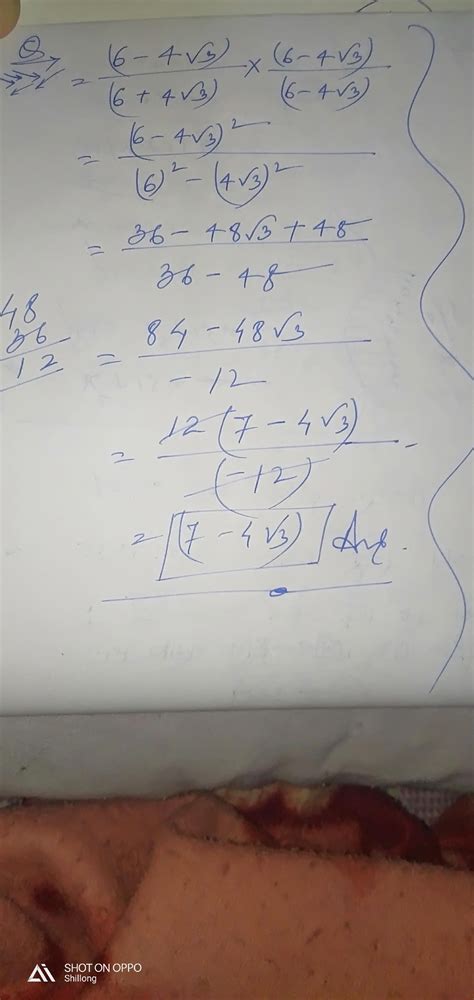 Q
= (6 - 4√3) / (6 + 4√3) × (6 - 4√3) / (6 - 4√3)
= (6 - 4√3)² / (6)² - (4√3)²
= 36 - 48√3 + 48 / 36 - 48
48
36
12
= 84 - 48√3 / - 12
= 12 (7 - 4√3) / (-12)
= (7 - 4√3) Ans.
SHOT ON OPPO
Shillong